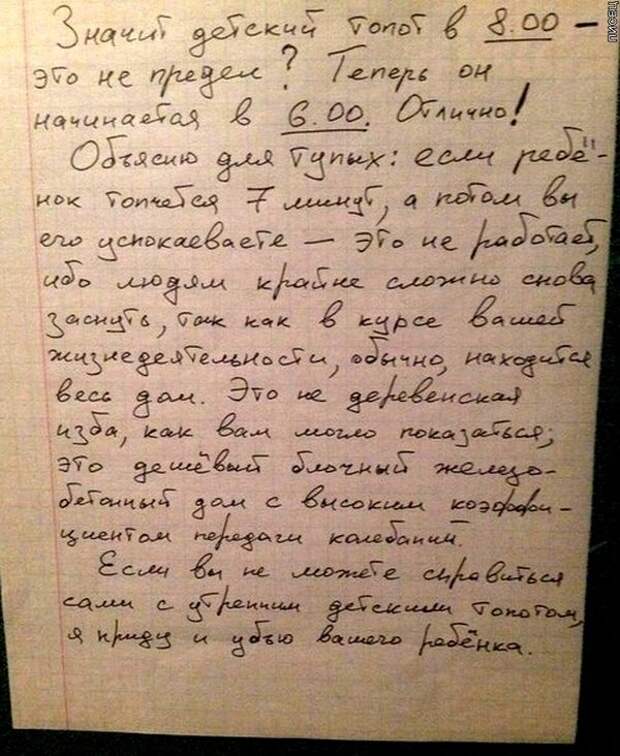 Значит детский топот в 8.00 –
это не предел? Теперь он
начинается в 6.00. Отлично!
Объясню для тупых: если ребё-
нок топчется 7 минут, а потом вы
его успокаеваете — это не работает,
ибо людям крайне сложно снова
заснуть, так как в курсе вашей
жизнедеятельности, обычно, находится
весь дом. Это не деревенская
изба, как вам могло показаться;
это дешёвый блочный железо-
бетонный дом с высоким коэффи-
циентом передачи колебаний.
Если вы не можете справиться
сами с утренним детским топотом,
я приду и убью вашего ребёнка.
ПИСЕЦ